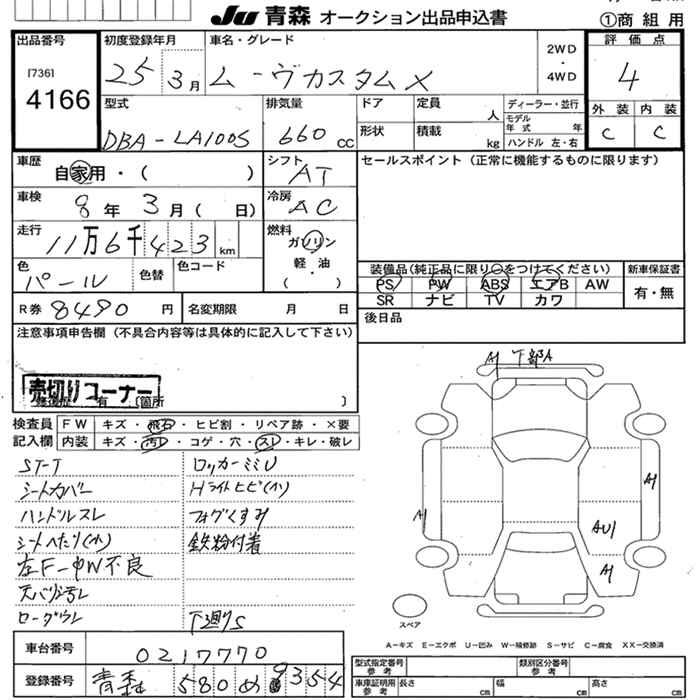 JU 青森 オークション出品申込書
①商組用
出品番号
[736]
4166
初度登録年月
25年3月
車名・グレード
ムーヴカスタムX
2WD
・
4WD
評価点
4
外装 内装
C C
型式
DBA-LA100S
排気量
660cc
ドア
定員
人
形状
積載
kg
ディーラー・並行
モデル年式
年
ハンドル 左・右
車歴
自家用・( )
シフト
AT
セールスポイント(正常に機能するものに限ります)
車検
8年3月( 日)
冷房
AC
走行
11万6千423km
燃料
ガソリン
軽・油
・
( )
色
パール
色替
色コード
装備品(純正品に限り○をつけてください)
PS PW ABS エアB AW
SR ナビ TV カワ
新車保証書
有・無
R券 8490円
名変期限
月 日
後日品
注意事項申告欄(不具合内容等は具体的に記入して下さい)
売切りコーナー
修復歴 有 [箇所 ]
検査員
記入欄
FW キズ・飛石・ヒビ割・リペア跡・×要
内装 キズ・汚レ・コゲ・穴・スレ・キレ・破レ
ST-T
シートカバー
ハンドルスレ
シートへたり(小)
左F-PW不良
天バリ汚レ
ロッカーミミU
Hライトヒビ(小)
フォグくすみ
鉄粉付着
下廻りS
A1 下部A
A1
A1
AU1
A1
スペア
A-キズ E-エクボ U-凹み W-補修跡 S-サビ C-腐食 XX-交換済
車台番号
0217770
登録番号
青森 580 め 9354
型式指定番号
参考
類別区分番号
参考
車庫証明用
参考
長さ
cm
幅
cm
高さ
cm